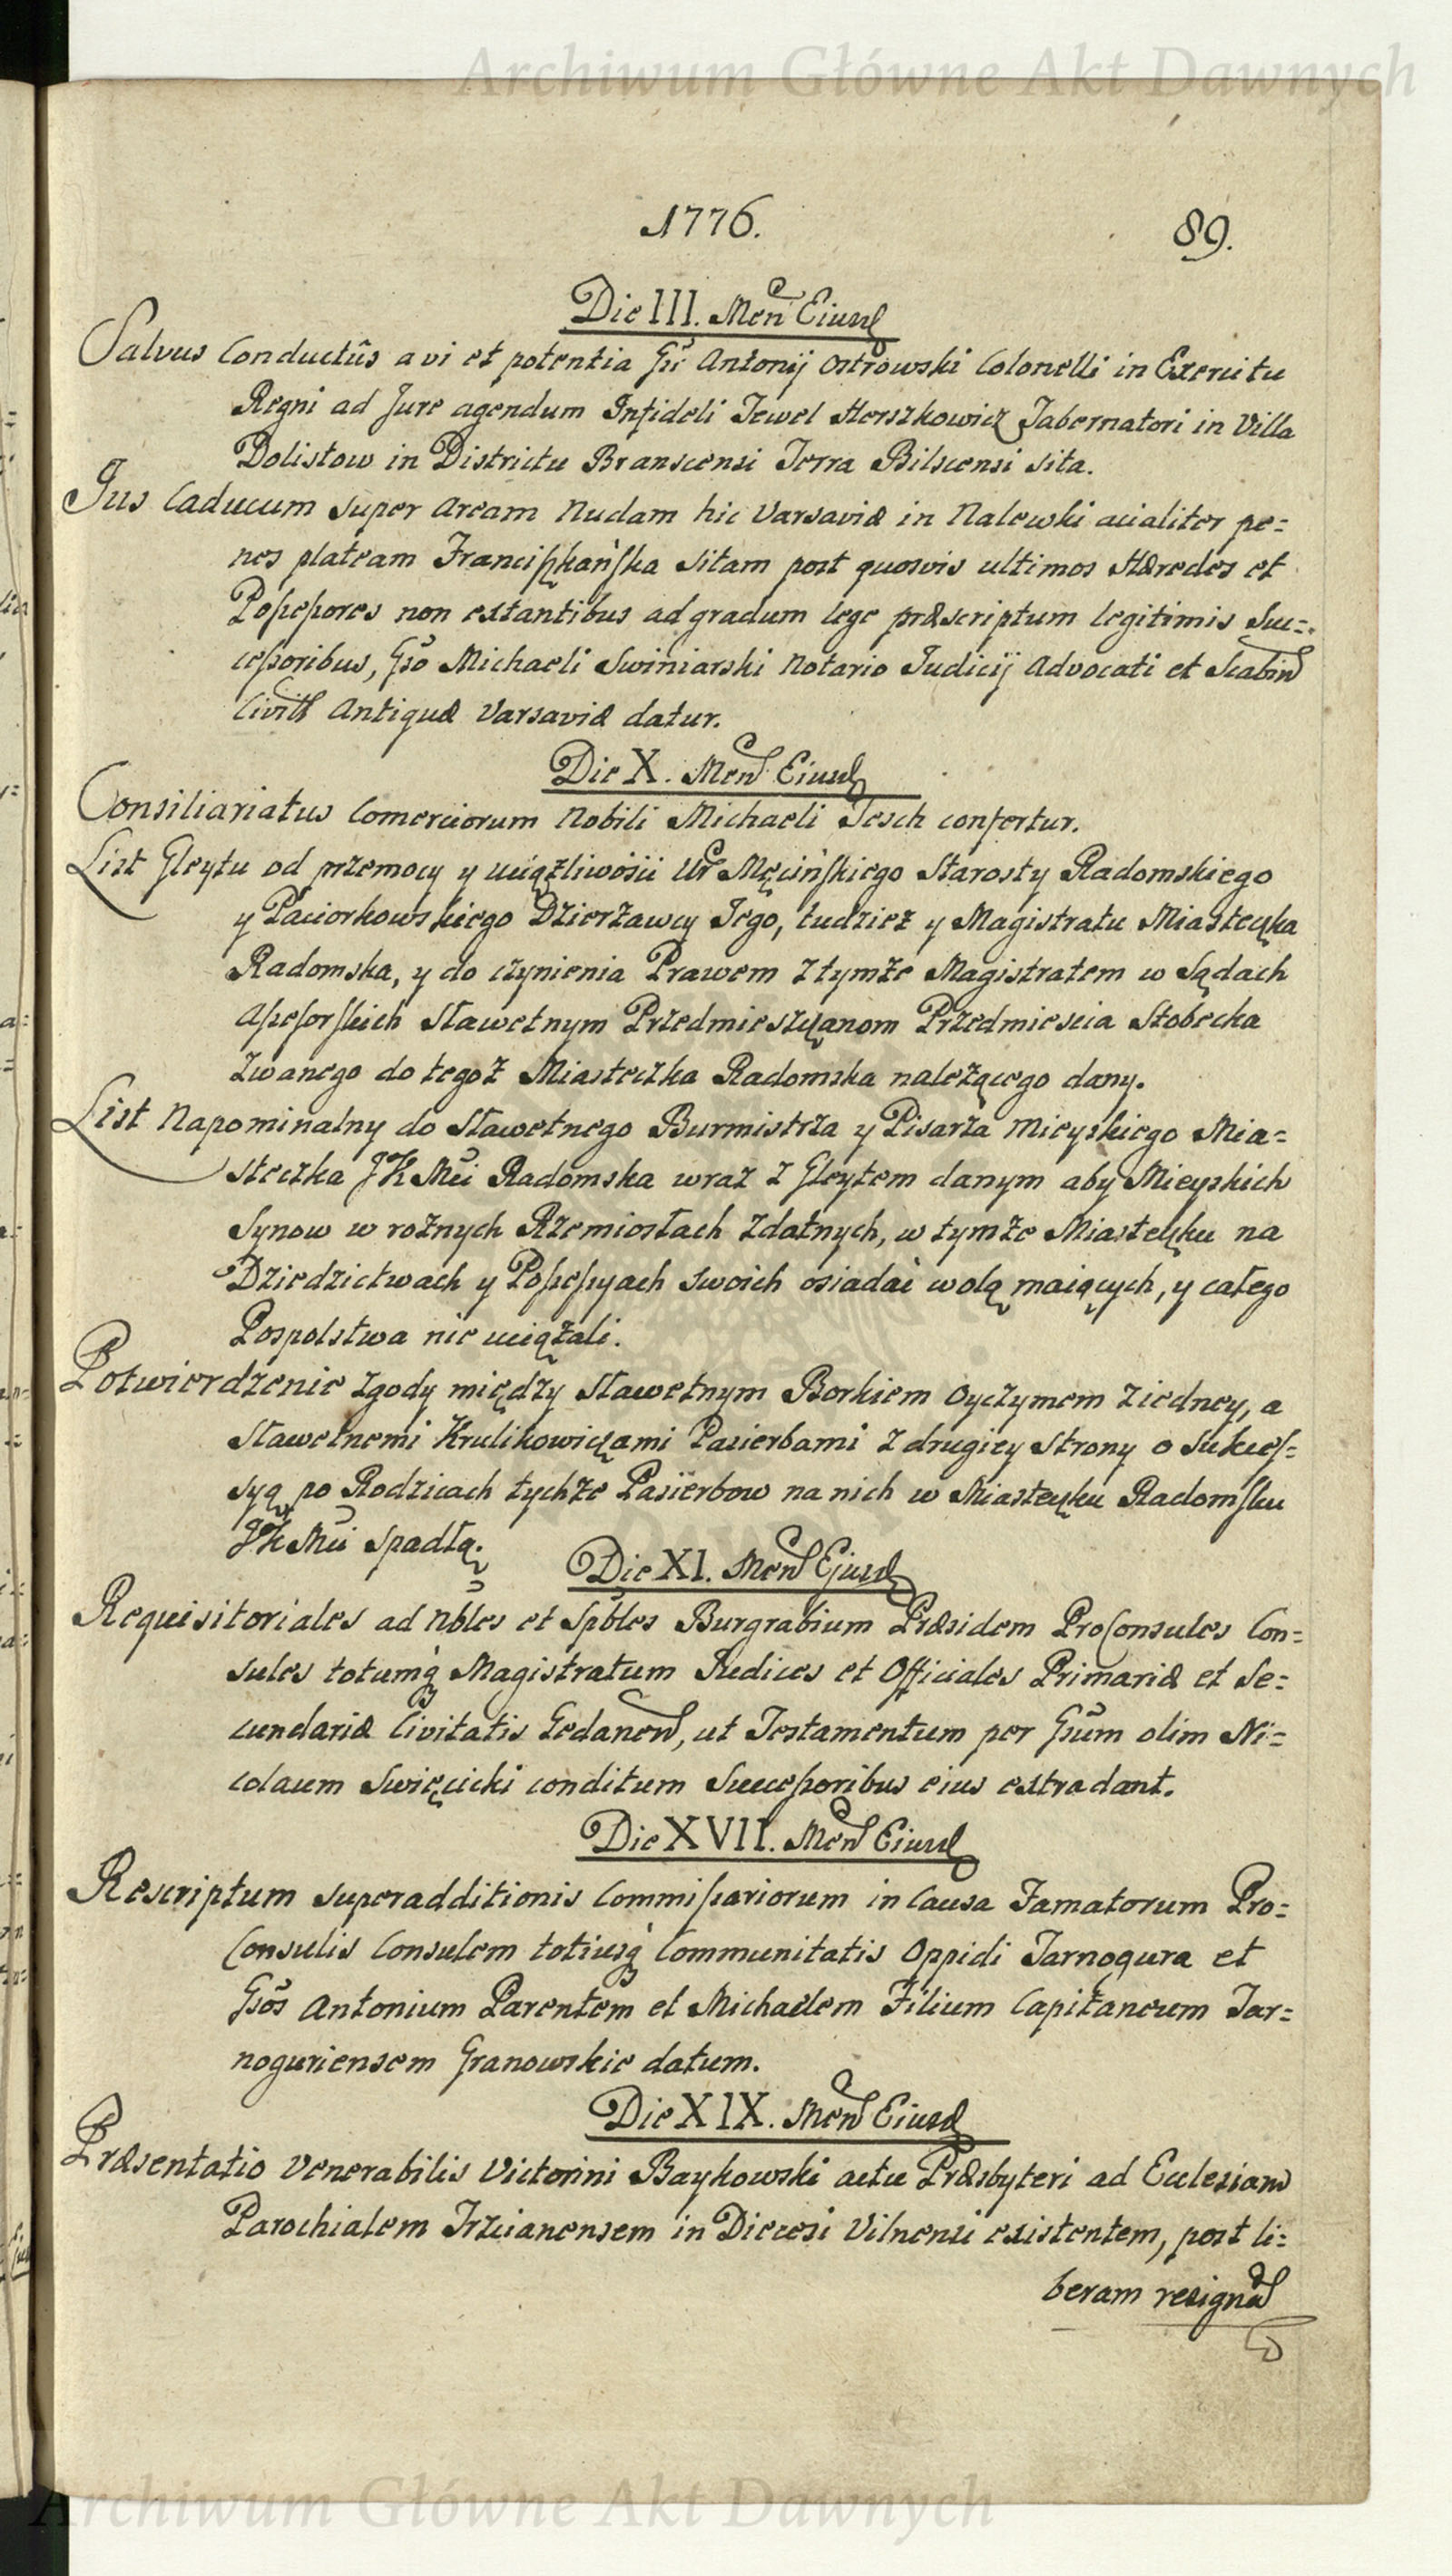 Archiwum Główne Akt Dawnych
1776.
89.
Die III. Men Eiusd
Salvus Conductûs a vi et potentia Gsi Antonij Ostrowski Colonelli in Exercitu
Regni ad Jure agendum Infideli Jewel Herszkowicz Tabernatori in Villa
Dolistow in Districtu Branscensi Terra Bilscensi sita.
Jus Caducum super Aream Nudam hic Varsaviæ in Nalewki acialiter pe=
nes plateam Franciszkańska sitam post quosvis ultimos Hæredes et
Possessores non extantibus ad gradum lege præscriptum legitimis Suc=
cessoribus, Gso Michaeli Swiniarski Notario Judicij Advocati et Scabin
Civitt Antiquæ Varsaviæ datur.
Die X. Men Eiusd
Consiliariatus Comerciorum Nobili Michaeli Tesch confertur.
List Gleytu od przemocy y uciążliwości Ur Męcińskiego Starosty Radomskiego
y Paciorkowskiego Dzierżawcy Jego, tudzież y Magistratu Miasteczka
Radomska, y do czynienia Prawem z tymże Magistratem w Sądach
Assesorskich Sławetnym Przedmieszczanom Przedmiescia Stobecka
zwanego do tegoż Miasteczka Radomska należącego dany.
List Napominalny do Sławetnego Burmistrza y Pisarza Mieyskiego Mia=
steczka JK Mci Radomska wraz z Gleytem danym aby Mieyskich
Synow w rożnych Rzemiosłach zdatnych, w tymże Miasteczku na
Dziedzictwach y Possessyach swoich osiadać wolą maiących, y całego
Pospolstwa nie uciążali.
Potwierdzenie zgody między Sławetnym Borkiem Oyczymem z iedney, a
Sławetnemi Krulikowiczami Pasierbami z drugiey strony o sukces=
syą po Rodzicach tychże Pasierbow na nich w Miasteczku Radomsku
JK Mci spadłą.
Die XI. Men Ejusd
Requisitoriales ad Nbles et Spbles Burgrabium Præsidem ProConsules Con=
sules totumq Magistratum Judices et Officiales Primariæ et Se=
cundariæ Civitatis Gedanen, ut Testamentum per Gsum olim Ni=
colaum Swięcicki conditum Successoribus eius extradant.
Die XVII. Men Eiusd
Rescriptum superadditionis Commissariorum in Causa Famatorum Pro=
Consulis Consulem totiusq Communitatis Oppidi Tarnogura et
Gsos Antonium Parentem et Michaelem Filium Capitaneum Tar=
noguriensem Granowskie datum.
Die XIX. Men Eiusd
Præsentatio Venerabilis Victorini Baykowski actu Præsbyteri ad Ecclesiam
Parochialem Trzcianensem in Diecesi Vilnensi existentem, post li=
beram resigna
Archiwum Główne Akt Dawnych